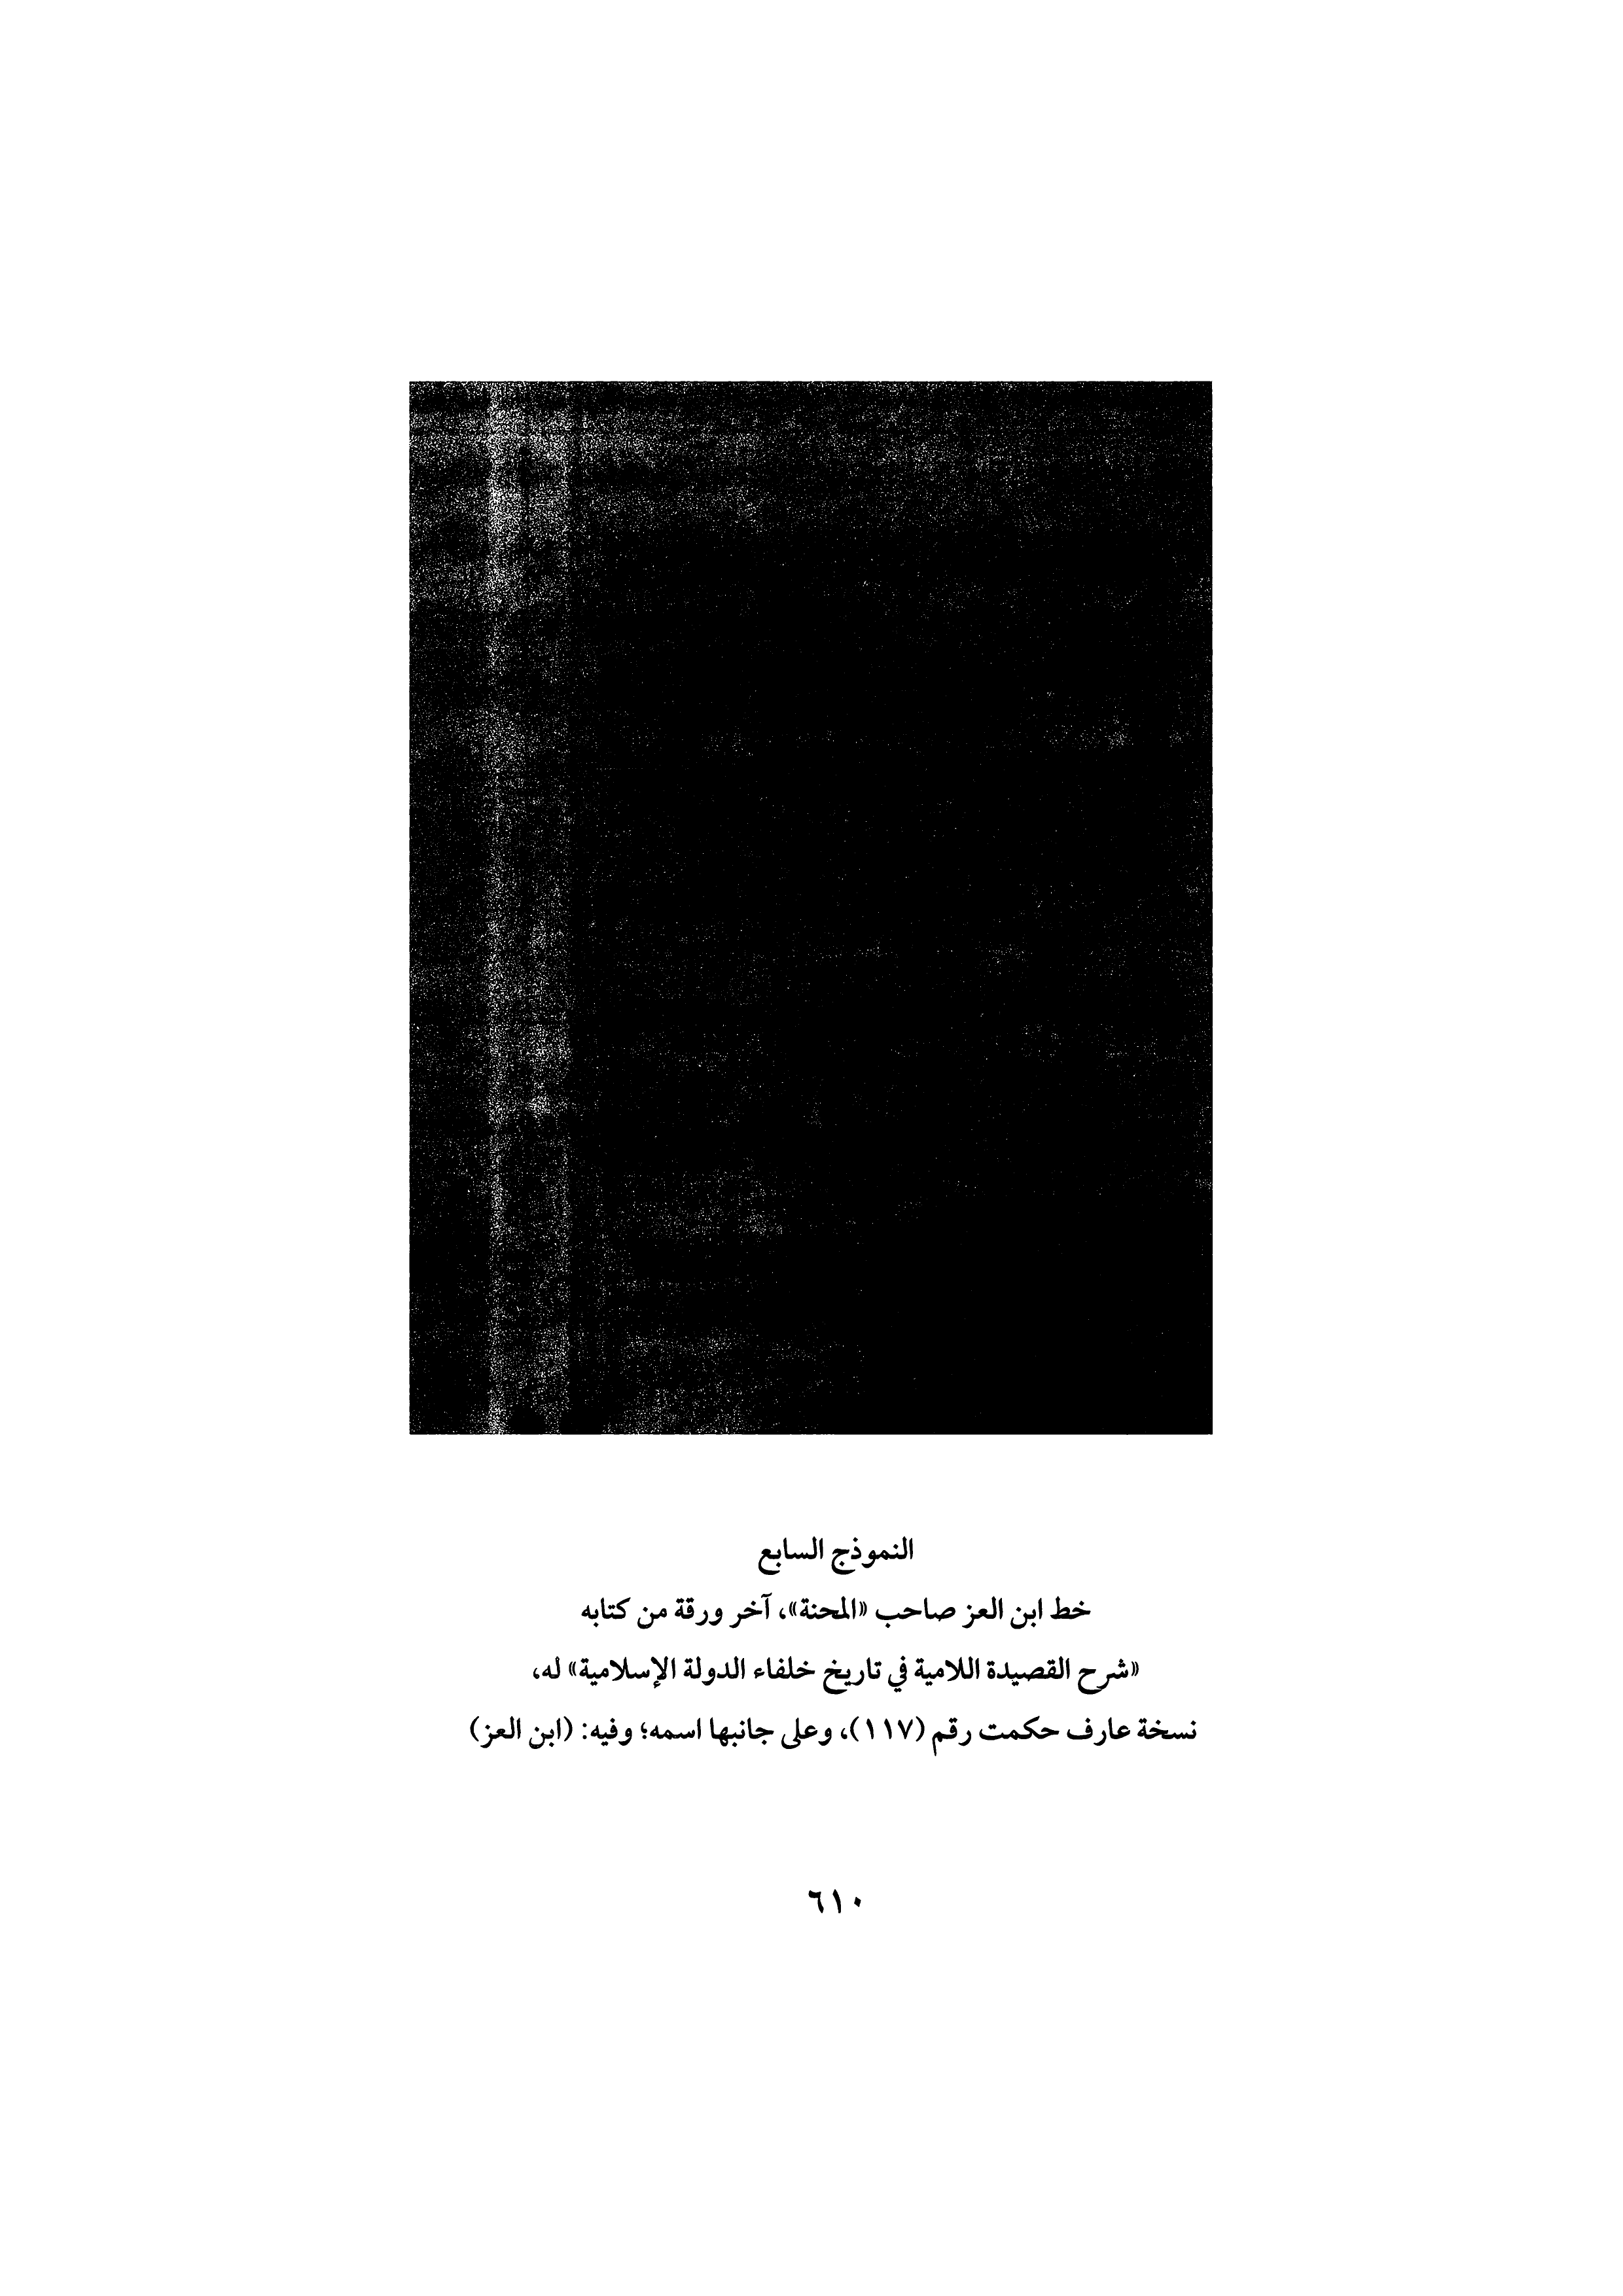 النموذج السابع
خط ابن العز صاحب «المحنة»، آخر ورقة من كتابه
«شرح القصيدة اللامية في تاريخ خلفاء الدولة الإسلامية» له،
نسخة عارف حكمت رقم (١١٧)، وعلى جانبها اسمه؛ وفيه: (ابن العز)
٦١٠